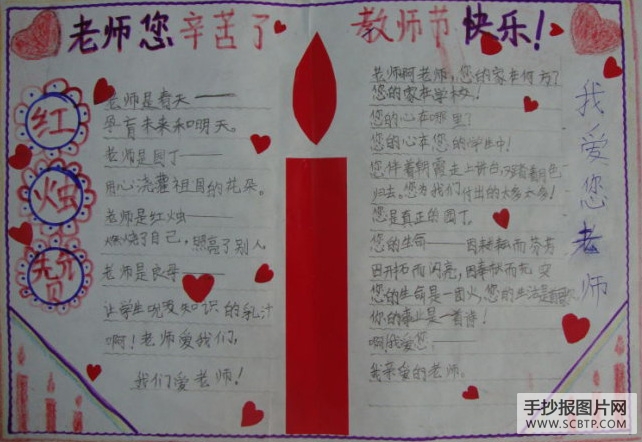 老师您辛苦了
教师节快乐!
红
烛
颂
老师是春天——
孕育未来和明天。
老师是园丁——
用心浇灌祖国的花朵。
老师是红烛——
燃烧了自己，照亮了别人
老师是良母——
让学生吮吸知识的乳汁
啊！老师爱我们，
我们爱老师！
老师啊老师，您的家在何方？
您的家在学校！
您的心在哪里？
您的心在您的学生中！
您伴着朝霞走上讲台，踏着月色
归去。您为我们付出的太多太多！
您是真正的园丁。
您的生命——因耕耘而芬芳
因开拓而闪亮，因奉献而充实
您的生命是一团火，您的生活是
你的事业是一首诗！
啊！我爱您——
我亲爱的老师。
我爱您老师
手抄报图片网
WWW.SCBTP.COM